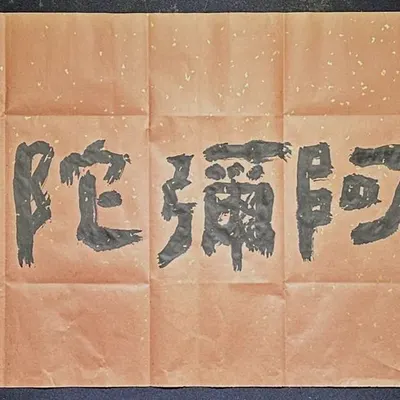 阿彌陀